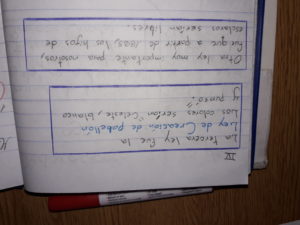 IV
La tercera ley fue la
Ley de Creación de pabellón
Los colores serían "Celeste, blanco
y punzó."
Otra ley muy importante para nosotros,
fue que a partir de 1825, los hijos de
esclavos serían libres.